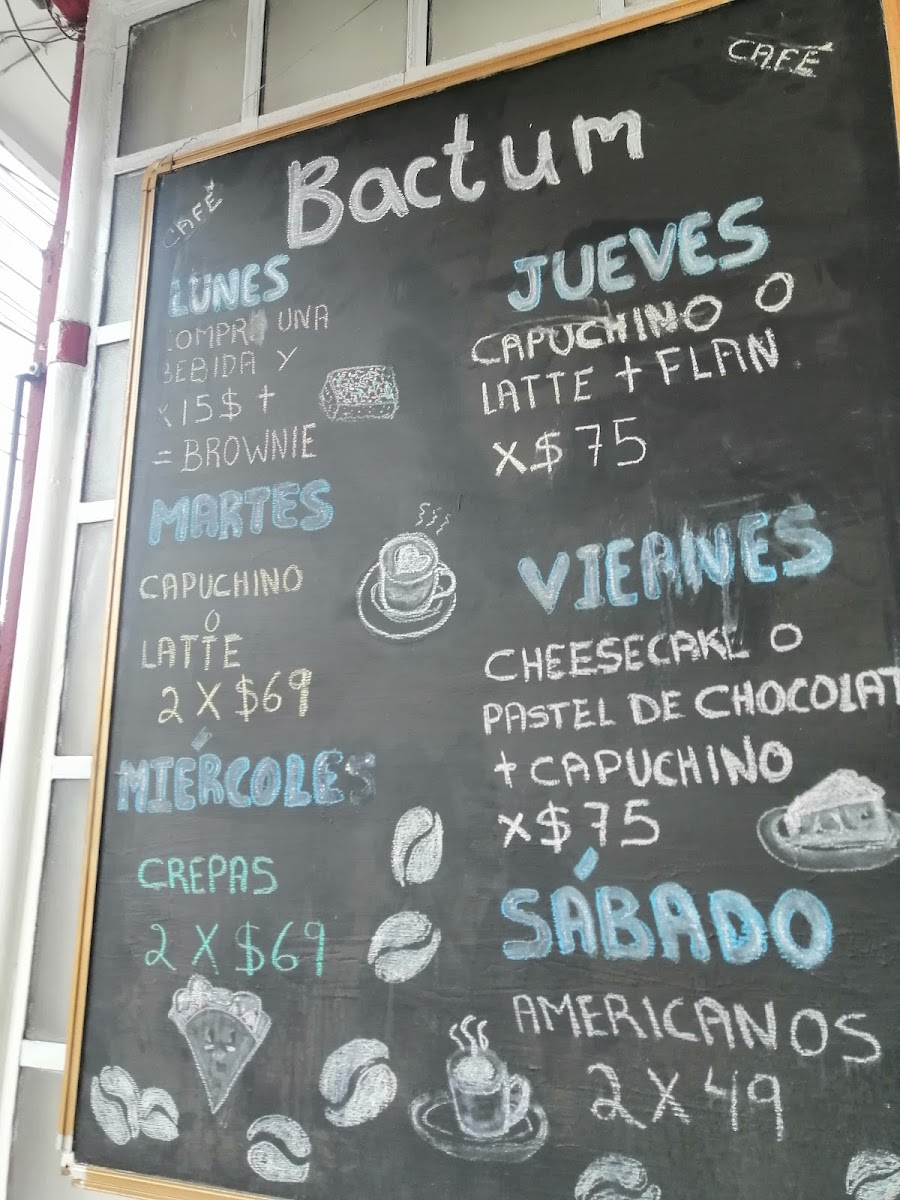 CAFÉ
CAFÉ
Bactum
LUNES
COMPRA UNA
BEBIDA Y
X 15$ +
= BROWNIE
MARTES
CAPUCHINO
O
LATTE
2 X $69
MIÉRCOLES
CREPAS
2 X $69
JUEVES
CAPUCHINO O
LATTE + FLAN
X $75
VIERNES
CHEESECAKE O
PASTEL DE CHOCOLAT
+ CAPUCHINO
X $75
SÁBADO
AMERICANOS
2 X 49